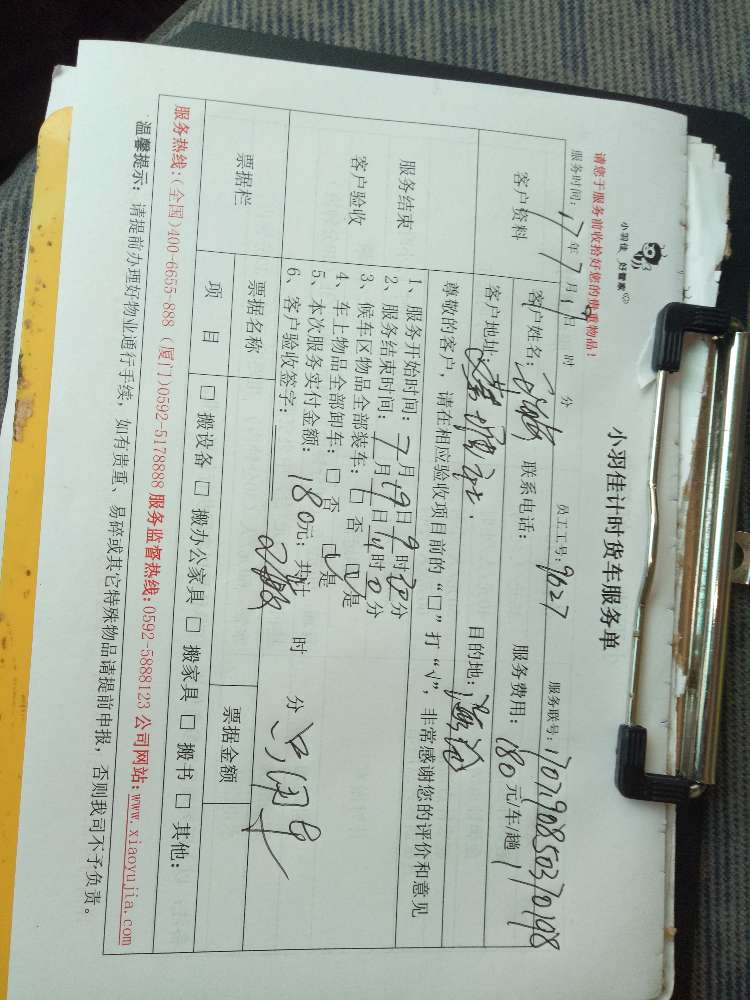 小羽佳 好管家
小羽佳计时货车服务单
请您于服务前收拾好您的贵重物品!
服务时间: 17年7月19日 时 分 员工工号: 9627 服务联号:
客户资料 客户姓名: 联系电话: 服务费用: 180元/车/趟
客户地址: 目的地:
尊敬的客户, 请在相应验收项目前的“□”打“√”, 非常感谢您的评价和意见
服务结束
客户验收
1、服务开始时间: 7月19日9时 分
2、服务结束时间: 7月 日 时0分
3、候车区物品全部装车: □ 否 □ 是
4、车上物品全部卸车: □ 否 □ 是
5、本次服务实付金额: 180元; 共计 时 分
6、客户验收签字:
票据栏 票据名称 票据金额
项 目 □ 搬设备 □ 搬办公家具 □ 搬家具 □ 搬书 □ 其他:
服务热线:(全国)400-6655-888 (厦门)0592-5178888 服务监督热线:0592-5888123 公司网站:www.xiaoyujia.com
温馨提示: 请提前办理好物业通行手续, 如有贵重、易碎或其它特殊物品请提前申报, 否则我司不予负责。